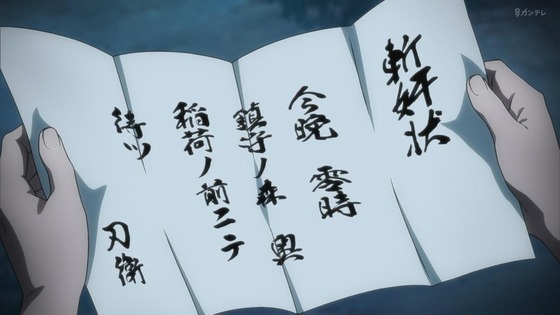 斬奸状
今晩 零時
鎮守ノ森 奥
稲荷ノ前ニテ
待ツ 刃衛
8カンテレ